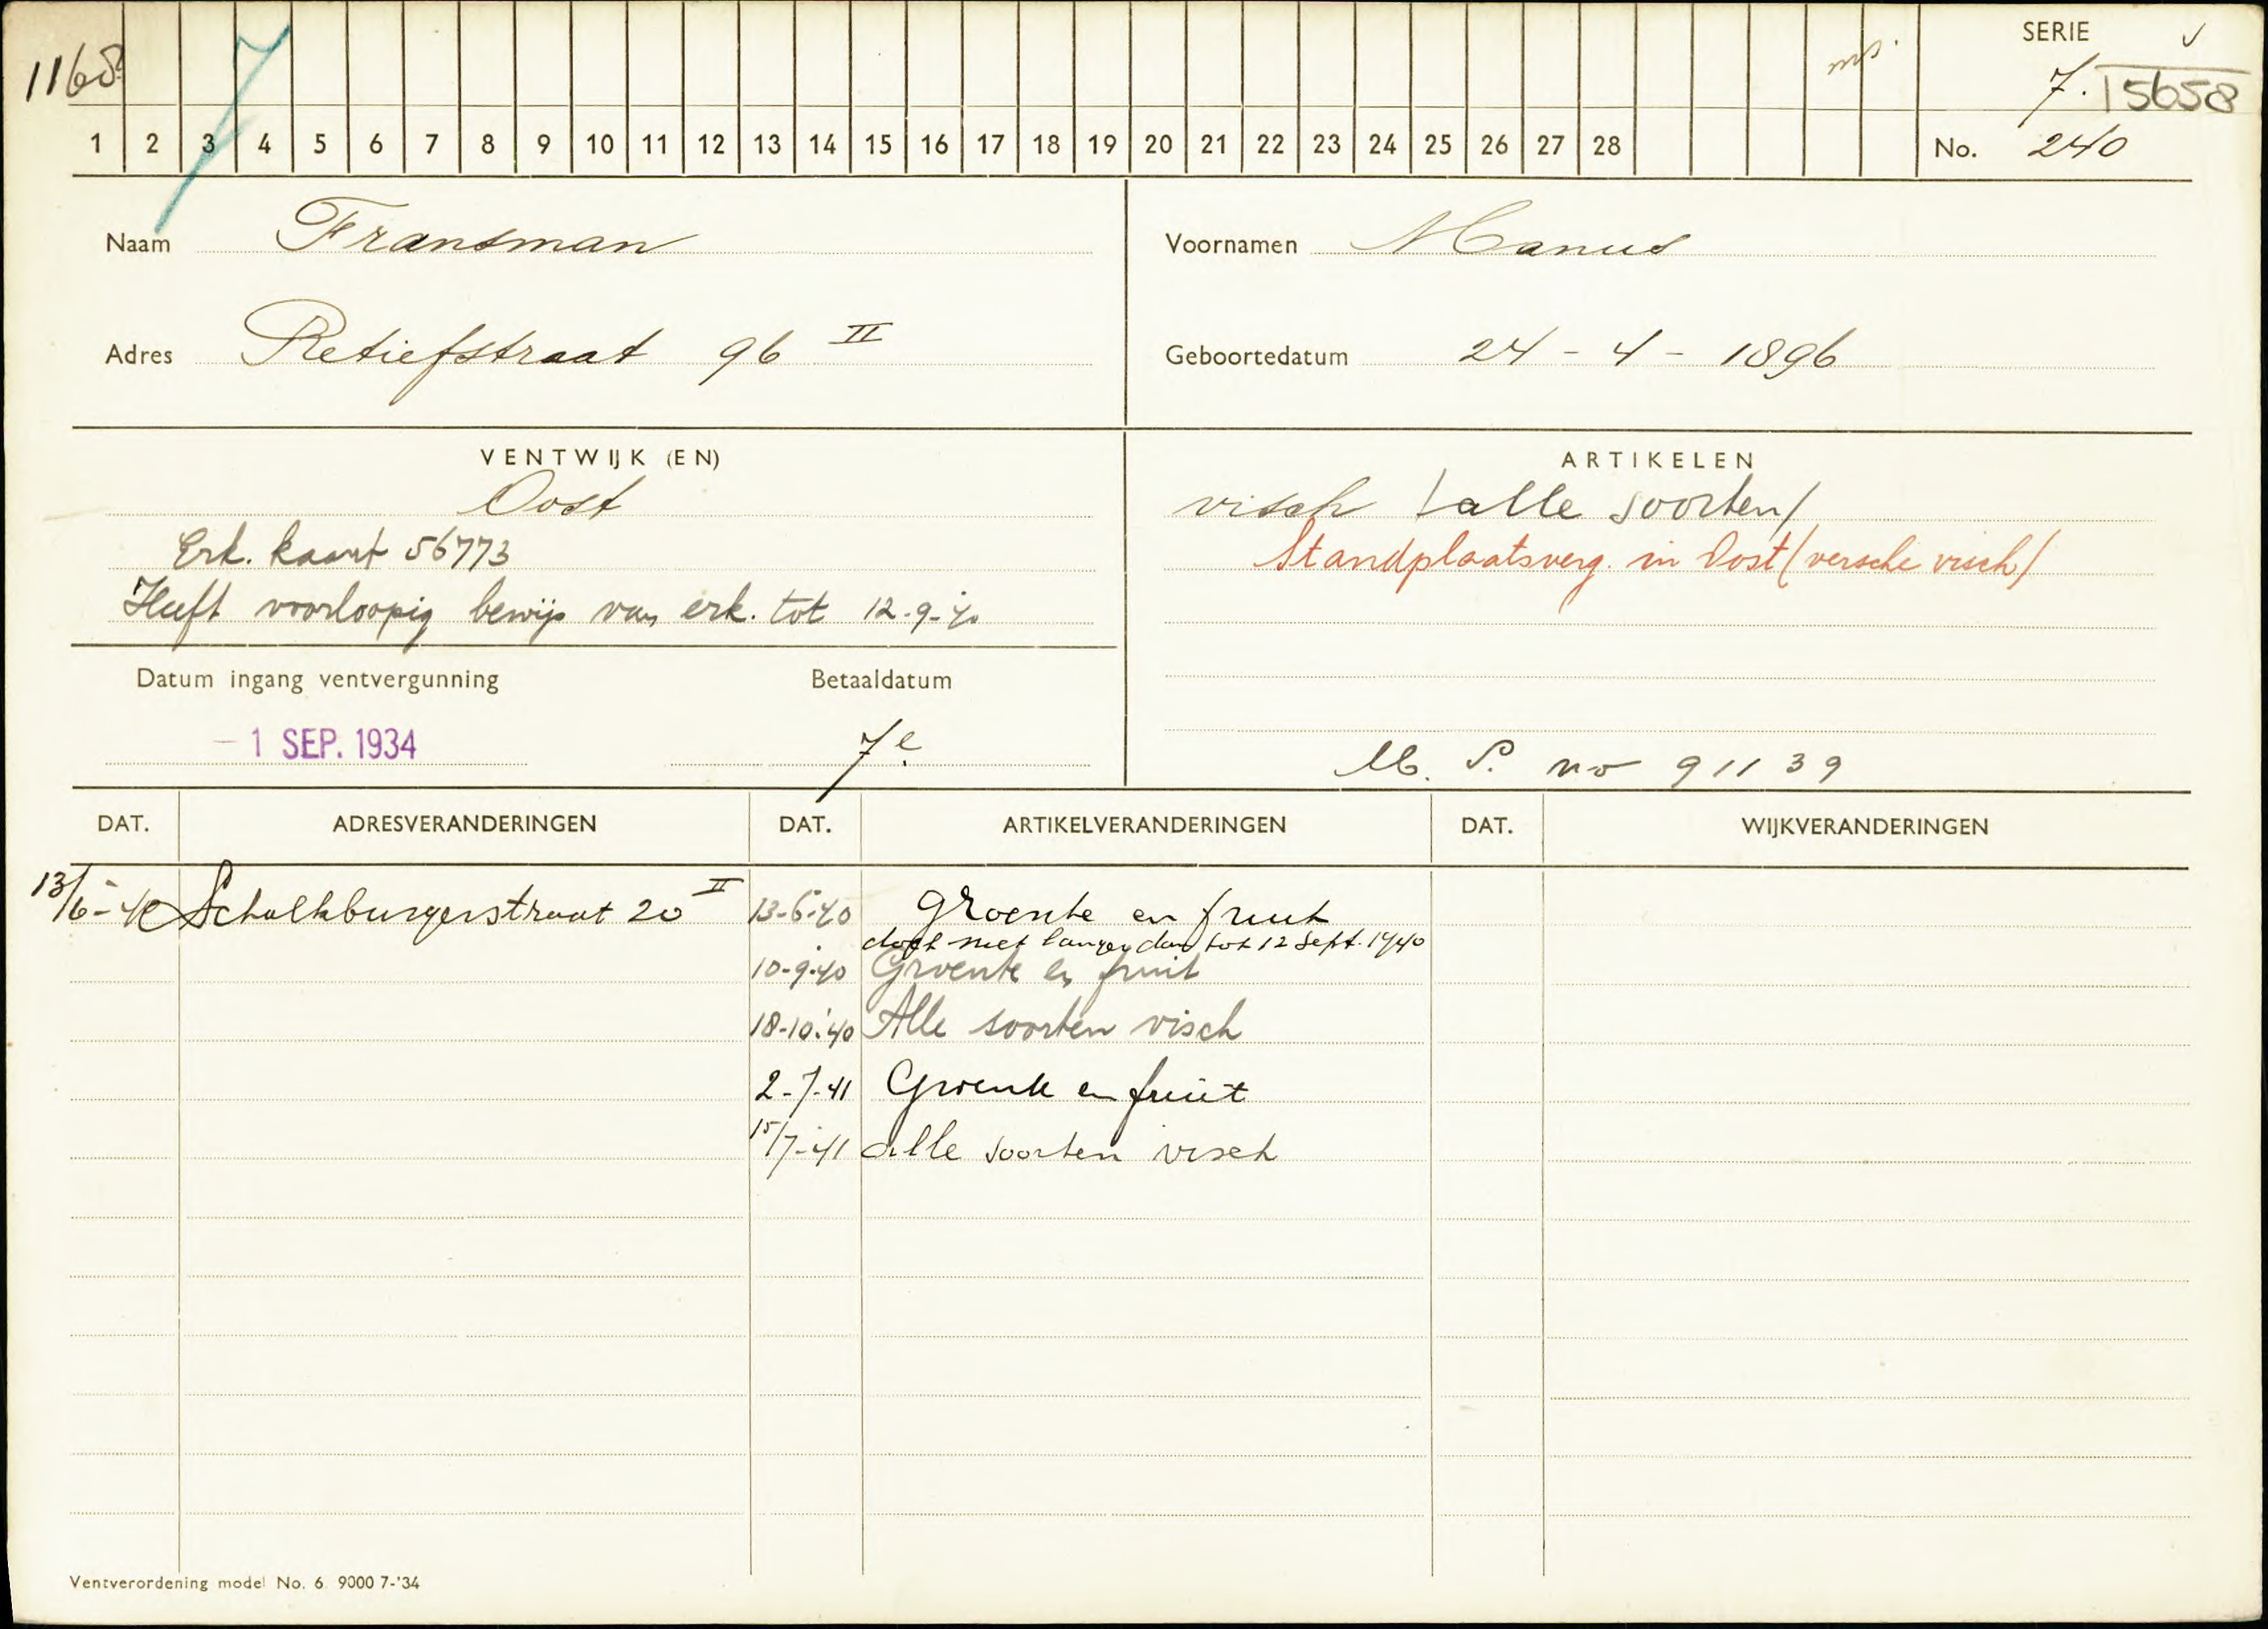 1168
SERIE
7. 15658
1 2 3 4 5 6 7 8 9 10 11 12 13 14 15 16 17 18 19 20 21 22 23 24 25 26 27 28
No. 240
Naam Fransman
Voornamen Manus
Adres Retiefstraat 96 II
Geboortedatum 24 - 4 - 1896
VENTWIJK (EN)
Oost
Erk. kaart 56773
Heeft voorloopig bewijs van erk. tot 12-9-'40
ARTIKELEN
visch /alle soorten/
Standplaatsverg. in Oost (versche visch)
Datum ingang ventvergunning
- 1 SEP. 1934
Betaaldatum
7e
M. P. no 91139
DAT. ADRESVERANDERINGEN DAT. ARTIKELVERANDERINGEN DAT. WIJKVERANDERINGEN
13/6-'40 Schalkburgerstraat 20 II 13-6-'40 Groente en fruit
doch niet langer dan tot 12 Sept. 1940
10-9-'40 Groente en fruit
18-10-'40 Alle soorten visch
2-7-41 Groente en fruit
15/7-'41 alle soorten visch
Ventverordening model No. 6 9000 7-'34